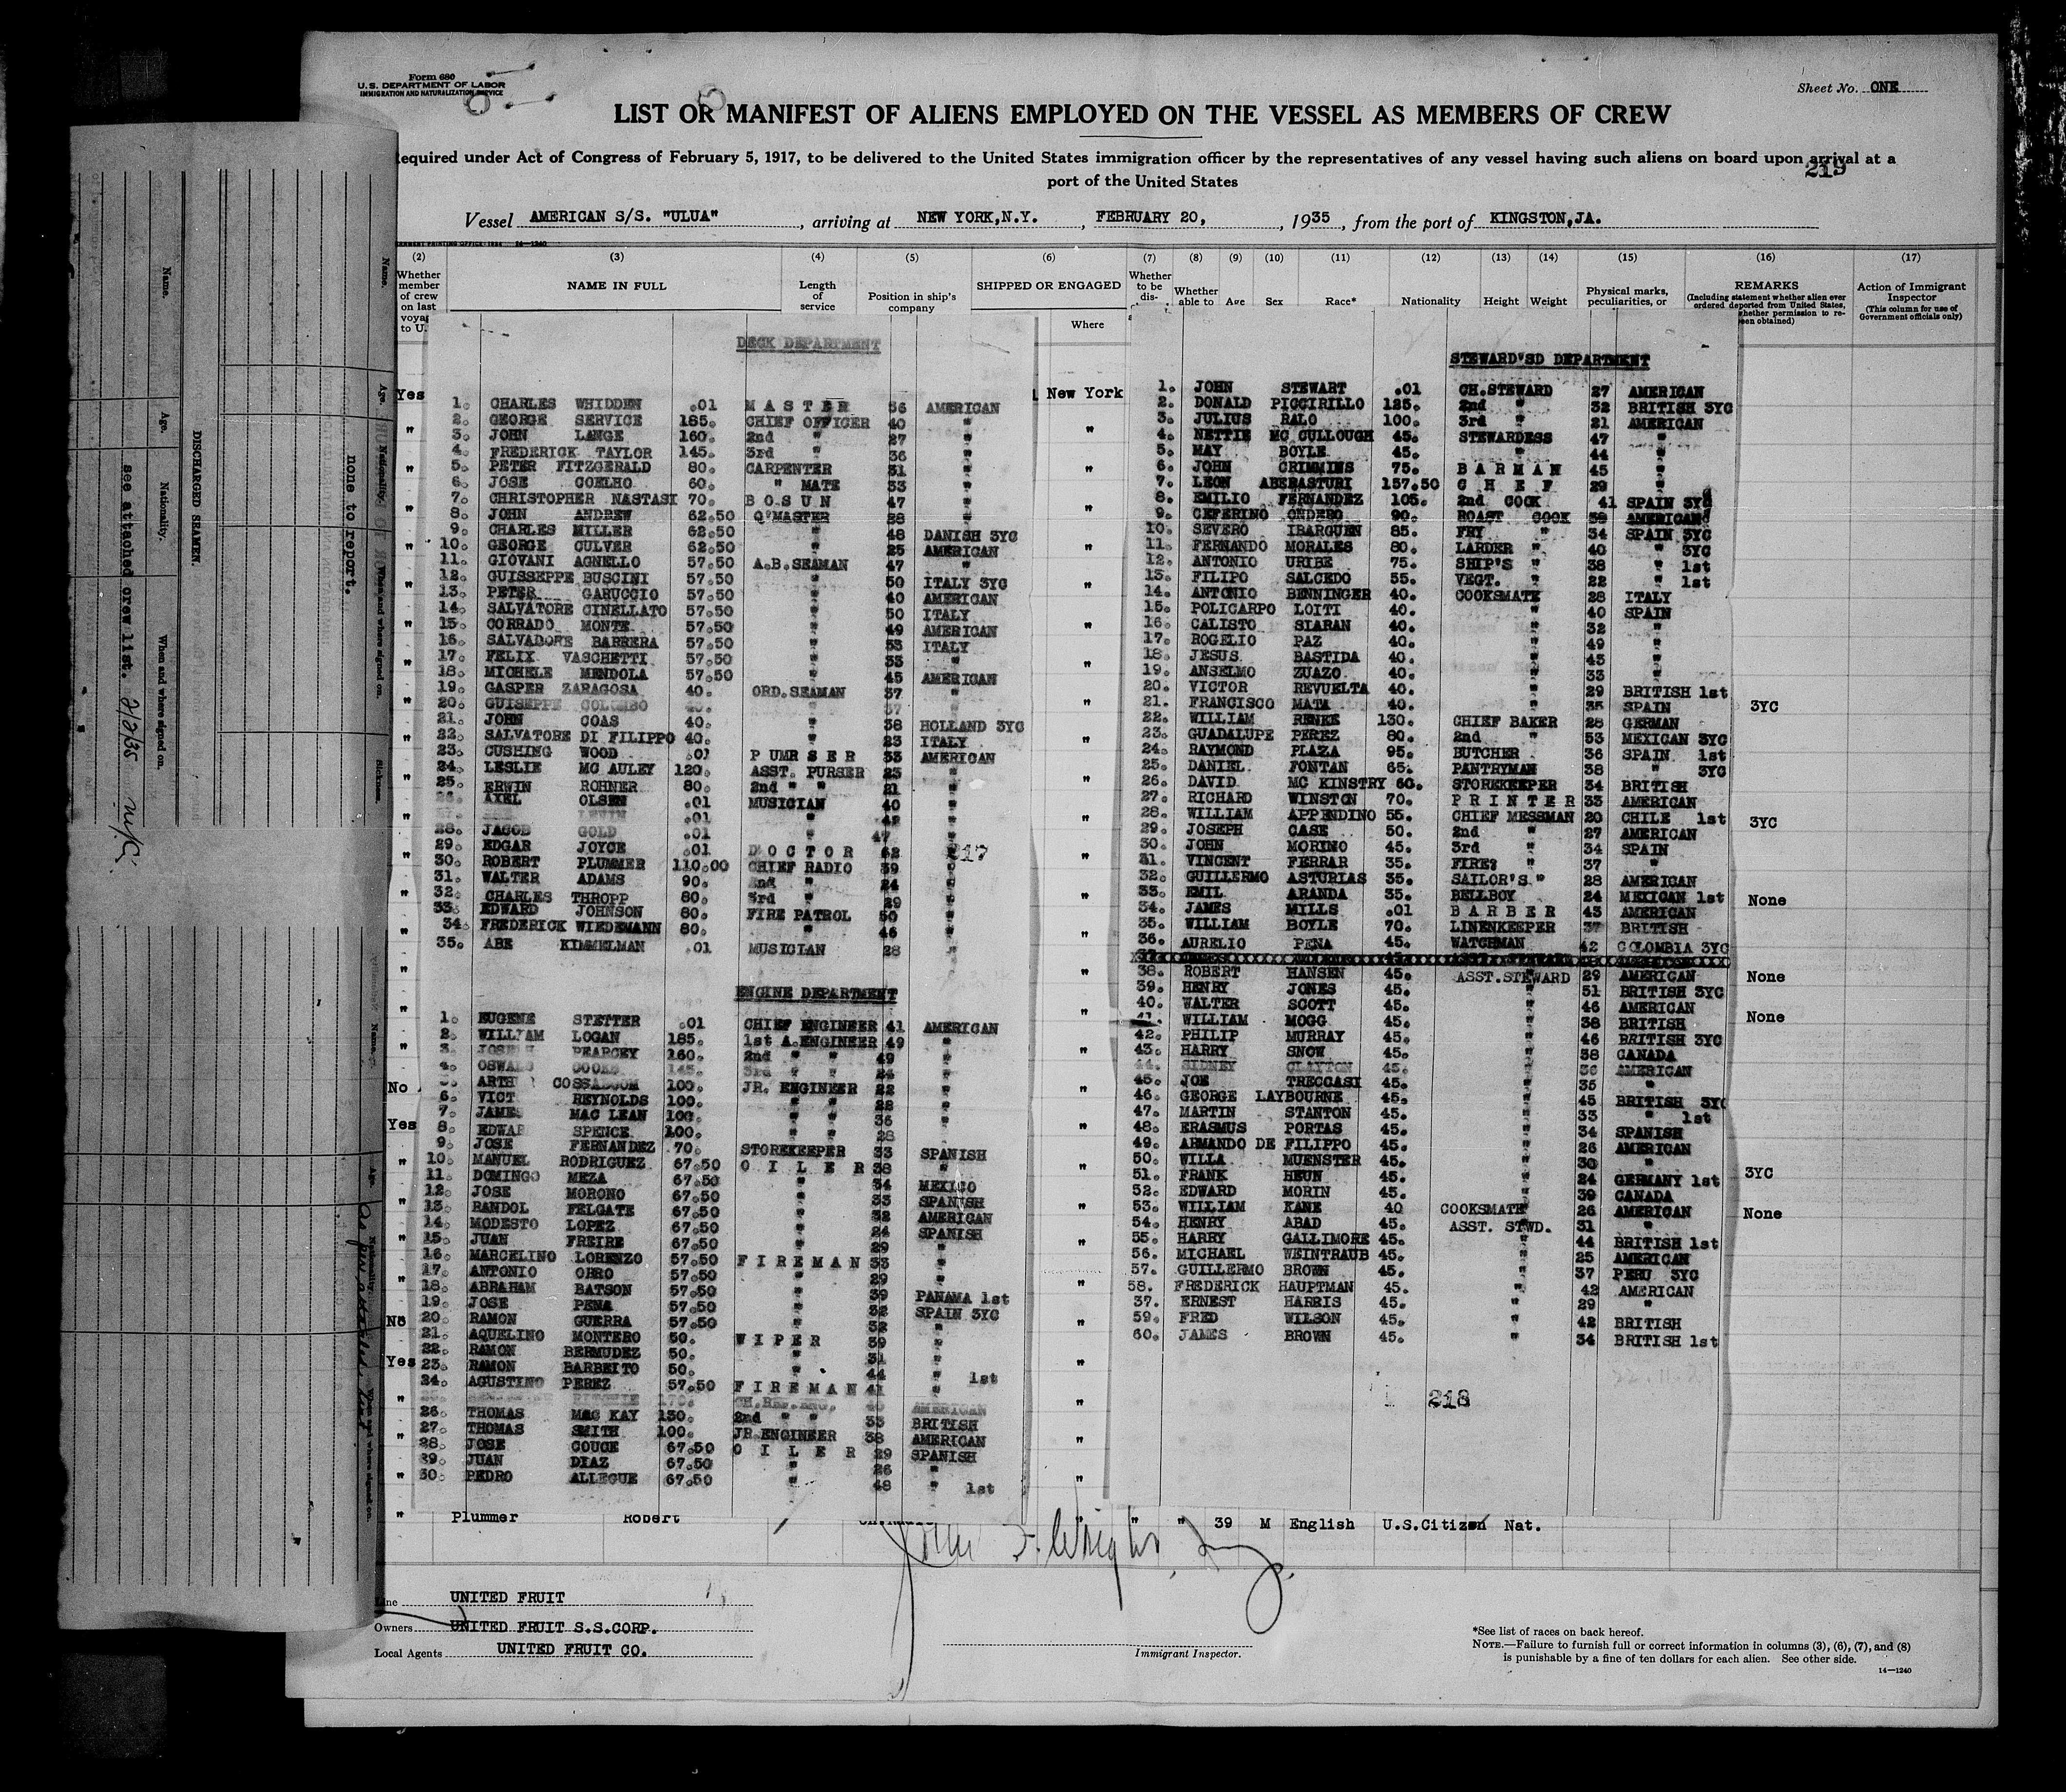 Form 680
U.S. DEPARTMENT OF LABOR
IMMIGRATION AND NATURALIZATION SERVICE
Sheet No. ONE
LIST OR MANIFEST OF ALIENS EMPLOYED ON THE VESSEL AS MEMBERS OF CREW
equired under Act of Congress of February 5, 1917, to be delivered to the United States immigration officer by the representatives of any vessel having such aliens on board upon arrival at a
port of the United States
219
Vessel AMERICAN S/S. "ULUA", arriving at NEW YORK,N.Y., FEBRUARY 20, 1935, from the port of KINGSTON,JA.
(2) (3) (4) (5) (6) (7) (8) (9) (10) (11) (12) (13) (14) (15) (16) (17)
Whether member of crew on last voyag to U.
NAME IN FULL
Length of service
Position in ship's company
SHIPPED OR ENGAGED
Where
Whether to be dis-
Whether able to
Age
Sex
Race*
Nationality
Height
Weight
Physical marks, peculiarities, or
REMARKS
(Including statement whether alien ever ordered deported from United States, whether permission to re- een obtained)
Action of Immigrant Inspector
(This column for use of Government officials only)
Yes
New York
DECK DEPARTMENT
1. CHARLES WHIDDEN .01 MASTER 56 AMERICAN
2. GEORGE SERVICE 185. CHIEF OFFICER 40 "
3. JOHN LANGE 160. 2nd " 27 "
4. FREDERICK TAYLOR 145. 3rd " 36 "
5. PETER FITZGERALD 80. CARPENTER 31 "
6. JOSE COELHO 60. " MATE 33 "
7. CHRISTOPHER NASTASI 70. BOSUN 47 "
8. JOHN ANDREW 62.50 Q'MASTER 28 "
9. CHARLES MILLER 62.50 " 48 DANISH 3YC
10. GEORGE CULVER 62.50 " 25 AMERICAN
11. GIOVANI AGNELLO 57.50 A.B.SEAMAN 47 "
12. GUISSEPPE BUSCINI 57.50 " 50 ITALY 3YC
13. PETER GARUCCIO 57.50 " 40 AMERICAN
14. SALVATORE CINELLATO 57.50 " 50 ITALY
15. CORRADO MONTE 57.50 " 49 AMERICAN
16. SALVADORE BARRERA 57.50 " 53 ITALY
17. FELIX VASCHETTI 57.50 " 33 "
18. MICHELE MENDOLA 57.50 " 45 AMERICAN
19. GASPER ZARAGOSA 40. ORD.SEAMAN 37 "
20. GUISEPPE COLOMBO 40. " 37 "
21. JOHN COAS 40. " 38 HOLLAND 3YC
22. SALVATORE DI FILIPPO 40. " 23 ITALY
23. CUSHING WOOD .01 PUMRSER 33 AMERICAN
24. LESLIE MC AULEY 120. ASST. PURSER 23 "
25. ERWIN ROHNER 80. 2nd " " 21 "
26. AXEL OLSEN .01 MUSICIAN 40 "
LEVIN .01 " 42 "
28. JACOB GOLD .01 " 47 "
29. EDGAR JOYCE .01 DOCTOR 62 "
217
30. ROBERT PLUMMER 110.00 CHIEF RADIO 39 "
31. WALTER ADAMS 90. 2nd " 24 "
32. CHARLES THROPP 80. 3rd " 29 "
33. EDWARD JOHNSON 80. FIRE PATROL 50 "
34. FREDERICK WIEDEMANN 80. " 46 "
35. ABE KIMMELMAN .01 MUSICIAN 28 "
ENGINE DEPARTMENT
1. EUGENE STETTER .01 CHIEF ENGINEER 41 AMERICAN
2. WILLIAM LOGAN 185. 1st A.ENGINEER 49 "
3. JOSEPH PEARCEY 160. 2nd " " 49 "
4. OSWALD COOKE 145. 3rd " " 24 "
ARTH COSSABOOM 100. JR. ENGINEER 22 "
6. VICT REYNOLDS 100. " " 28 "
7. JAMES MAC LEAN 100. " " 36 "
8. EDWAR SPENCE 100. " " 28 "
9. JOSE FERNANDEZ 70. STOREKEEPER 33 SPANISH
10. MANUEL RODRIGUEZ 67.50 OILER 38 "
11. DOMINGO MEZA 67.50 " 34 MEXICO
12. JOSE MORONO 67.50 " 33 SPANISH
13. RANDOL FELGATE 67.50 " 32 AMERICAN
14. MODESTO LOPEZ 67.50 " 24 SPANISH
15. JUAN FREIRE 67.50 " 29 "
16. MARCELINO LORENZO 57.50 FIREMAN 33 "
17. ANTONIO OBRO 57.50 " 29 "
18. ABRAHAM BATSON 57.50 " 39 PANAMA 1st
19. JOSE PENA 57.50 " 32 SPAIN 3YC
20. RAMON GUERRA 57.50 " 32 "
21. AQUELINO MONTERO 50. WIPER 39 "
22. RAMON BERMUDEZ 50. " 31 "
23. RAMON BARBEITO 50. " 44 " 1st
24. AGUSTINO PEREZ 57.50 FIREMAN 41 "
RITCHIE AMERICAN
26. THOMAS MAC KAY 130. 2nd " " 33 BRITISH
27. THOMAS SMITH 100. JR ENGINEER 38 AMERICAN
28. JOSE COUCE 67.50 OILER 29 SPANISH
29. JUAN DIAZ 67.50 " 26 "
30. PEDRO ALLEGUE 67.50 " 48 " 1st
STEWARD'SD DEPARTMENT
1. JOHN STEWART .01 CH.STEWARD 27 AMERICAN
2. DONALD PICCIRILLO 125. 2nd " 32 BRITISH 3YC
3. JULIUS RALO 100. 3rd " 21 AMERICAN
4. NETTIE MC CULLOUGH 45. STEWARDESS 47 "
5. MAY BOYLE 45. " 44 "
6. JOHN CRIMMINS 75. BARMAN 45 "
7. LEON ABERASTURI 157.50 CHEF 29 "
8. EMILIO FERNANDEZ 105. 2nd COOK 41 SPAIN 3YC
9. CEFERINO ONDERO 90. ROAST COOK 39 AMERICAN
10. SEVERO IBARGUEN 85. FRY " 34 SPAIN 3YC
11. FERNANDO MORALES 80. LARDER " 40 " 3YC
12. ANTONIO URIBE 75. SHIP'S " 38 " 1st
13. FILIPO SALCEDO 55. VEGT. " 22 " 1st
14. ANTONIO BENNINGER 40. COOKSMATE 28 ITALY
15. POLICARPO LOITI 40. " 40 SPAIN
16. CALISTO SIARAN 40. " 32 "
17. ROGELIO PAZ 40. " 49 "
18. JESUS BASTIDA 40. " 45 "
19. ANSELMO ZUAZO 40. " 33 "
20. VICTOR REVUELTA 40. " 29 BRITISH 1st
21. FRANCISCO MATA 40. " 35 SPAIN 3YC
22. WILLIAM RENKE 130. CHIEF BAKER 28 GERMAN
23. GUADALUPE PEREZ 80. 2nd " 53 MEXICAN 3YC
24. RAYMOND PLAZA 95. BUTCHER 36 SPAIN 1st
25. DANIEL FONTAN 65. PANTRYMAN 38 " 3YC
26. DAVID MC KINSTRY 60. STOREKEEPER 34 BRITISH
27. RICHARD WINSTON 70. PRINTER 33 AMERICAN
28. WILLIAM APPENDINO 55. CHIEF MESSMAN 20 CHILE 1st 3YC
29. JOSEPH CASE 50. 2nd " 27 AMERICAN
30. JOHN MORINO 45. 3rd " 34 SPAIN
31. VINCENT FERRAR 35. FIRE? " 37 "
32. GUILLERMO ASTURIAS 35. SAILOR'S " 28 AMERICAN
33. EMIL ARANDA 35. BELLBOY 24 MEXICAN 1st None
34. JAMES MILLS .01 BARBER 43 AMERICAN
35. WILLIAM BOYLE 70. LINENKEEPER 37 BRITISH
36. AURELIO PENA 45. WATCHMAN 42 COLOMBIA 3YC
38. ROBERT HANSEN 45. ASST.STEWARD 29 AMERICAN None
39. HENRY JONES 45. " 51 BRITISH 3YC
40. WALTER SCOTT 45. " 46 AMERICAN
41. WILLIAM MOGG 45. " 38 BRITISH None
42. PHILIP MURRAY 45. " 46 BRITISH 3YC
43. HARRY SNOW 45. " 38 CANADA
44. SIDNEY CLAYTON 45. " 36 AMERICAN
45. JOE TRECCASI 45. " 35 "
46. GEORGE LAYBOURNE 45. " 45 BRITISH 3YC
47. MARTIN STANTON 45. " 33 " 1st
48. ERASMUS PORTAS 45. " 34 SPANISH
49. ARMANDO DE FILIPPO 45. " 26 AMERICAN
50. WILLA MUENSTER 45. " 30 "
51. FRANK HEUN 45. " 24 GERMANY 1st 3YC
52. EDWARD MORIN 45. " 39 CANADA
53. WILLIAM KANE 40 COOKSMATE 26 AMERICAN None
54. HENRY ABAD 45. ASST. STWD. 31 "
55. HARRY GALLIMORE 45. " 44 BRITISH 1st
56. MICHAEL WEINTRAUB 45. " 25 AMERICAN
57. GUILLERMO BROWN 45. " 37 PERU 3YC
58. FREDERICK HAUPTMAN 45. " 42 AMERICAN
37. ERNEST HARRIS 45. " 29 "
59. FRED WILSON 45. " 42 BRITISH
60. JAMES BROWN 45. " 34 BRITISH 1st
218
No
Yes
No
Yes
" Plummer Robert " " " 39 M English U.S.Citizen Nat.
Line UNITED FRUIT
Owners UNITED FRUIT S.S.CORP.
Local Agents UNITED FRUIT CO.
Immigrant Inspector.
*See list of races on back hereof.
NOTE.—Failure to furnish full or correct information in columns (3), (6), (7), and (8)
is punishable by a fine of ten dollars for each alien. See other side.
14—1240
DISCHARGED SEAMEN.
Name. Age. Nationality. When and where signed on.
see attached crew list. 2/2/35
none to report.
Name. Age. Nationality. When and where signed on. Sickness.